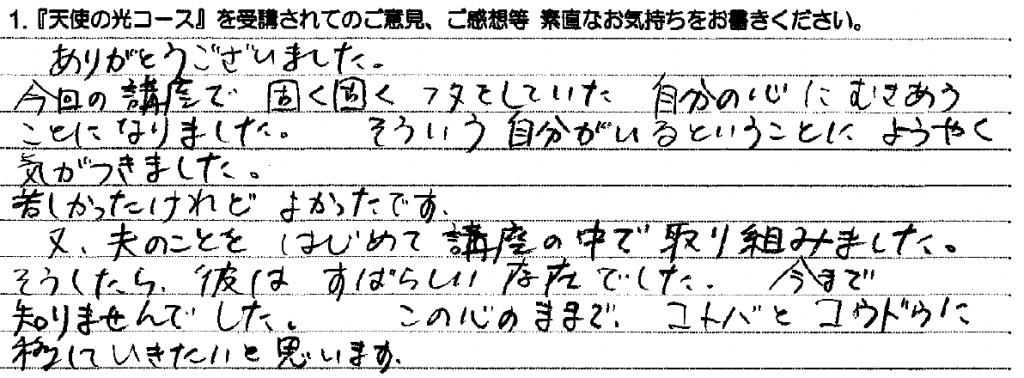 1.『天使の光コース』を受講されてのご意見、ご感想等 素直なお気持ちをお書きください。
ありがとうございました。
今回の講座で 固く固く フタをしていた 自分の心にむきあう
ことになりました。 そういう自分がいるということに ようやく
気がつきました。
苦しかったけれど よかったです。
又、夫のことを はじめて講座の中で取り組みました。
そうしたら、彼は すばらしい存在でした。 今まで
知りませんでした。 この心のままで、コトバとコウドウに
移していきたいと思います。